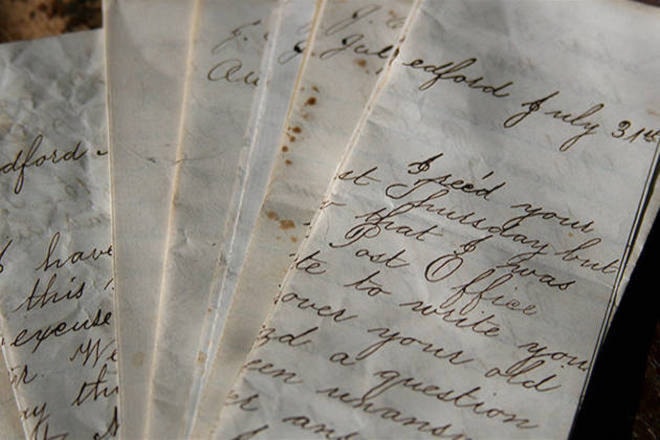 dford
I have
this
excuse
r. We
ay thi
J.
Au
J.
Jul
edford July 31st
I rec'd your
st Thursday but
r that I was
Post Office
te to write you
over your old
nd a question
een unansw
er and